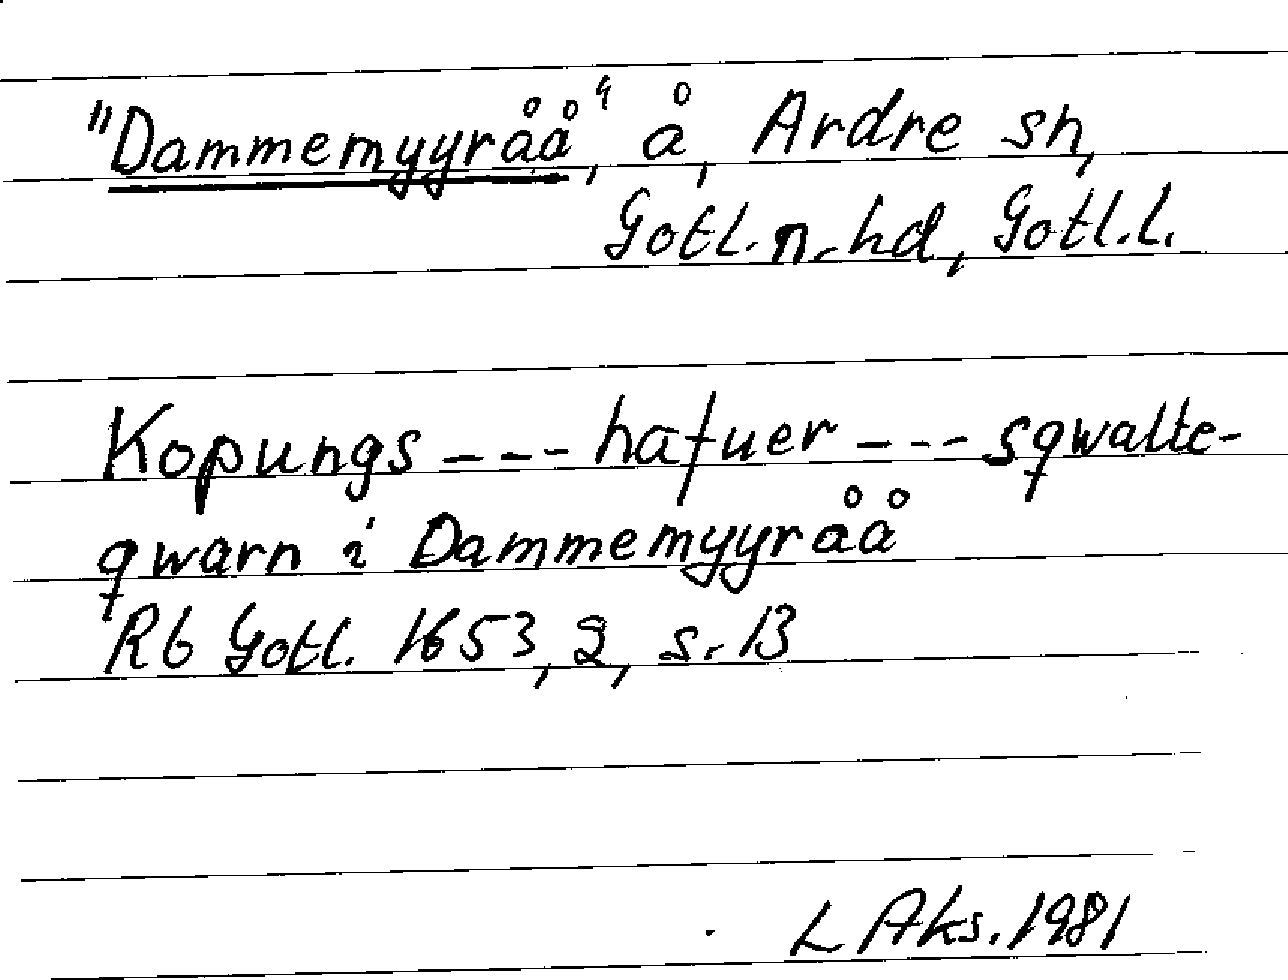 "Dammemyyråå", å, Ardre sn,
Gotl. n. hd, Gotl. l.
Kopungs --- hafuer --- sqwalte-
qwarn i Dammemyyråå
Rb Gotl. 1653, 2, s. 13
L Aks. 1981